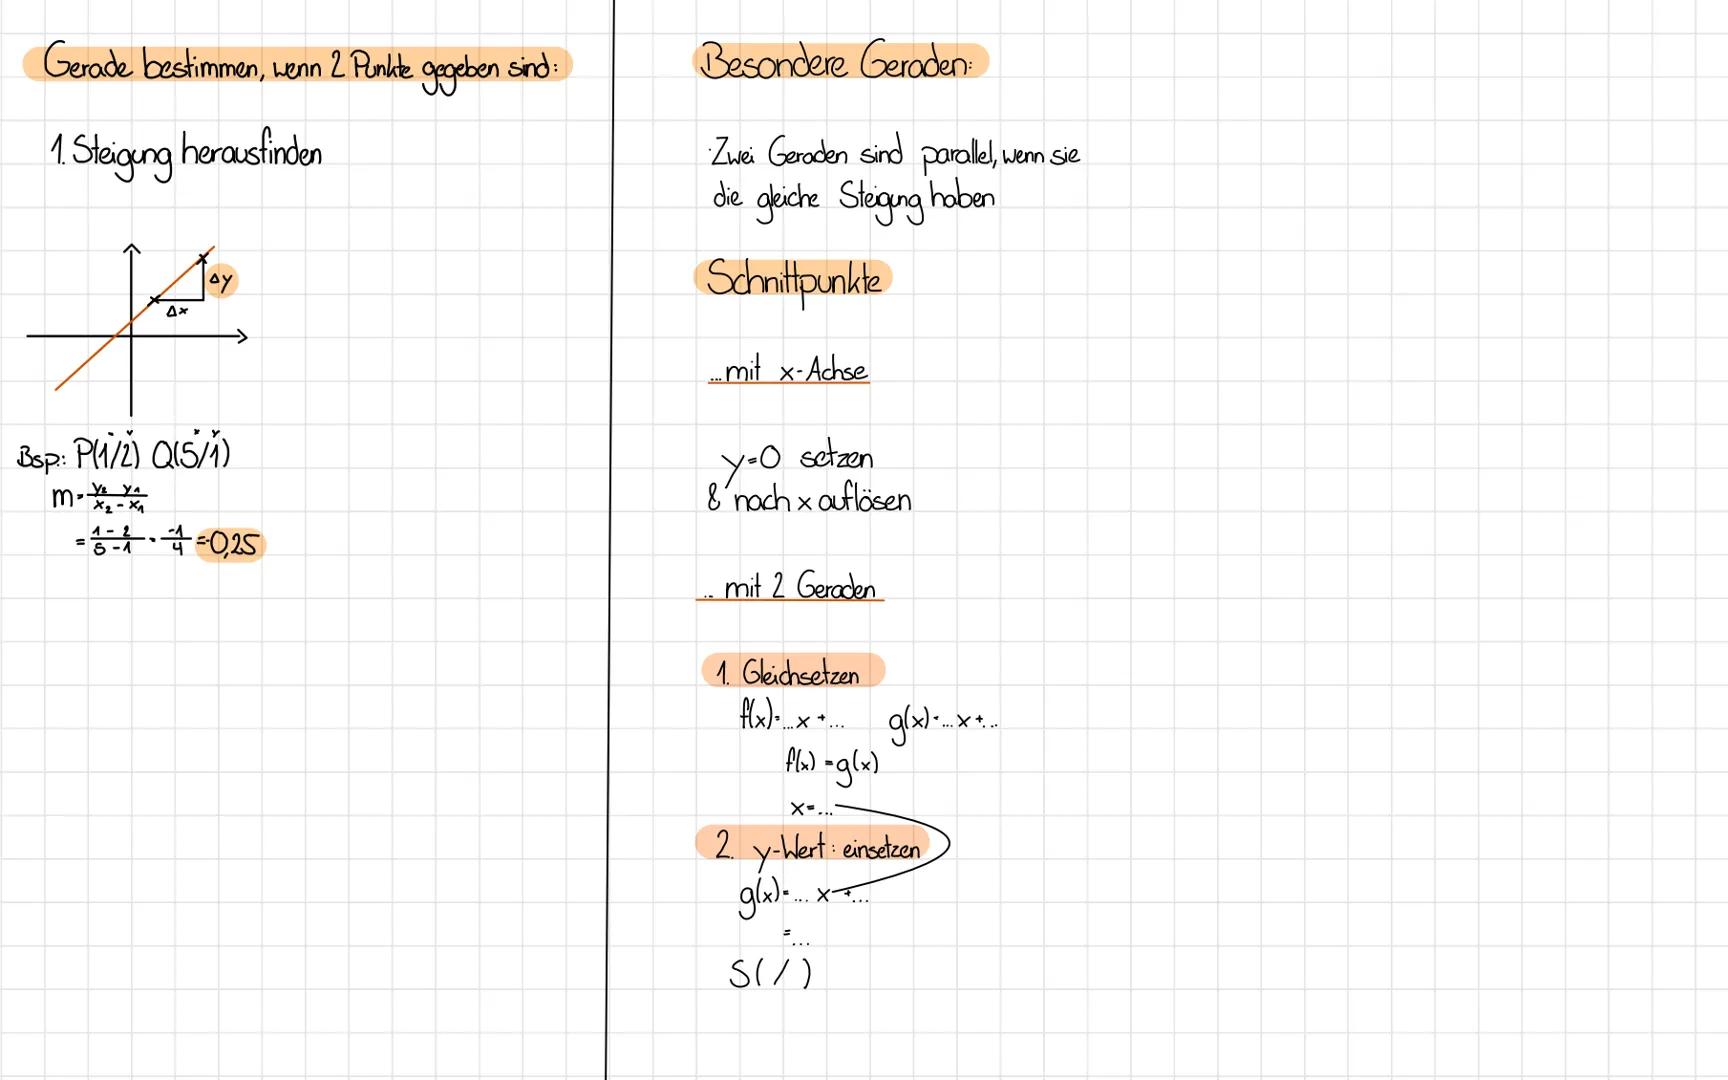 Gerade bestimmen, wenn 2 Punkte gegeben sind:
1. Steigung herausfinden
Δy
Δx
x y x y
Bsp.: P(1/2) Q(5/1)
m = y₂ - y₁ / x₂ - x₁
= 1 - 2 / 5 - 1 = -1 / 4 = -0,25
Besondere Geraden:
· Zwei Geraden sind parallel, wenn sie
die gleiche Steigung haben
Schnittpunkte
...mit x-Achse
y=0 setzen
& nach x auflösen
... mit 2 Geraden
1. Gleichsetzen
f(x)=...x+... g(x)=...x+...
f(x)=g(x)
x=...
2. y-Wert: einsetzen
g(x)=...x+...
=...
S( / )